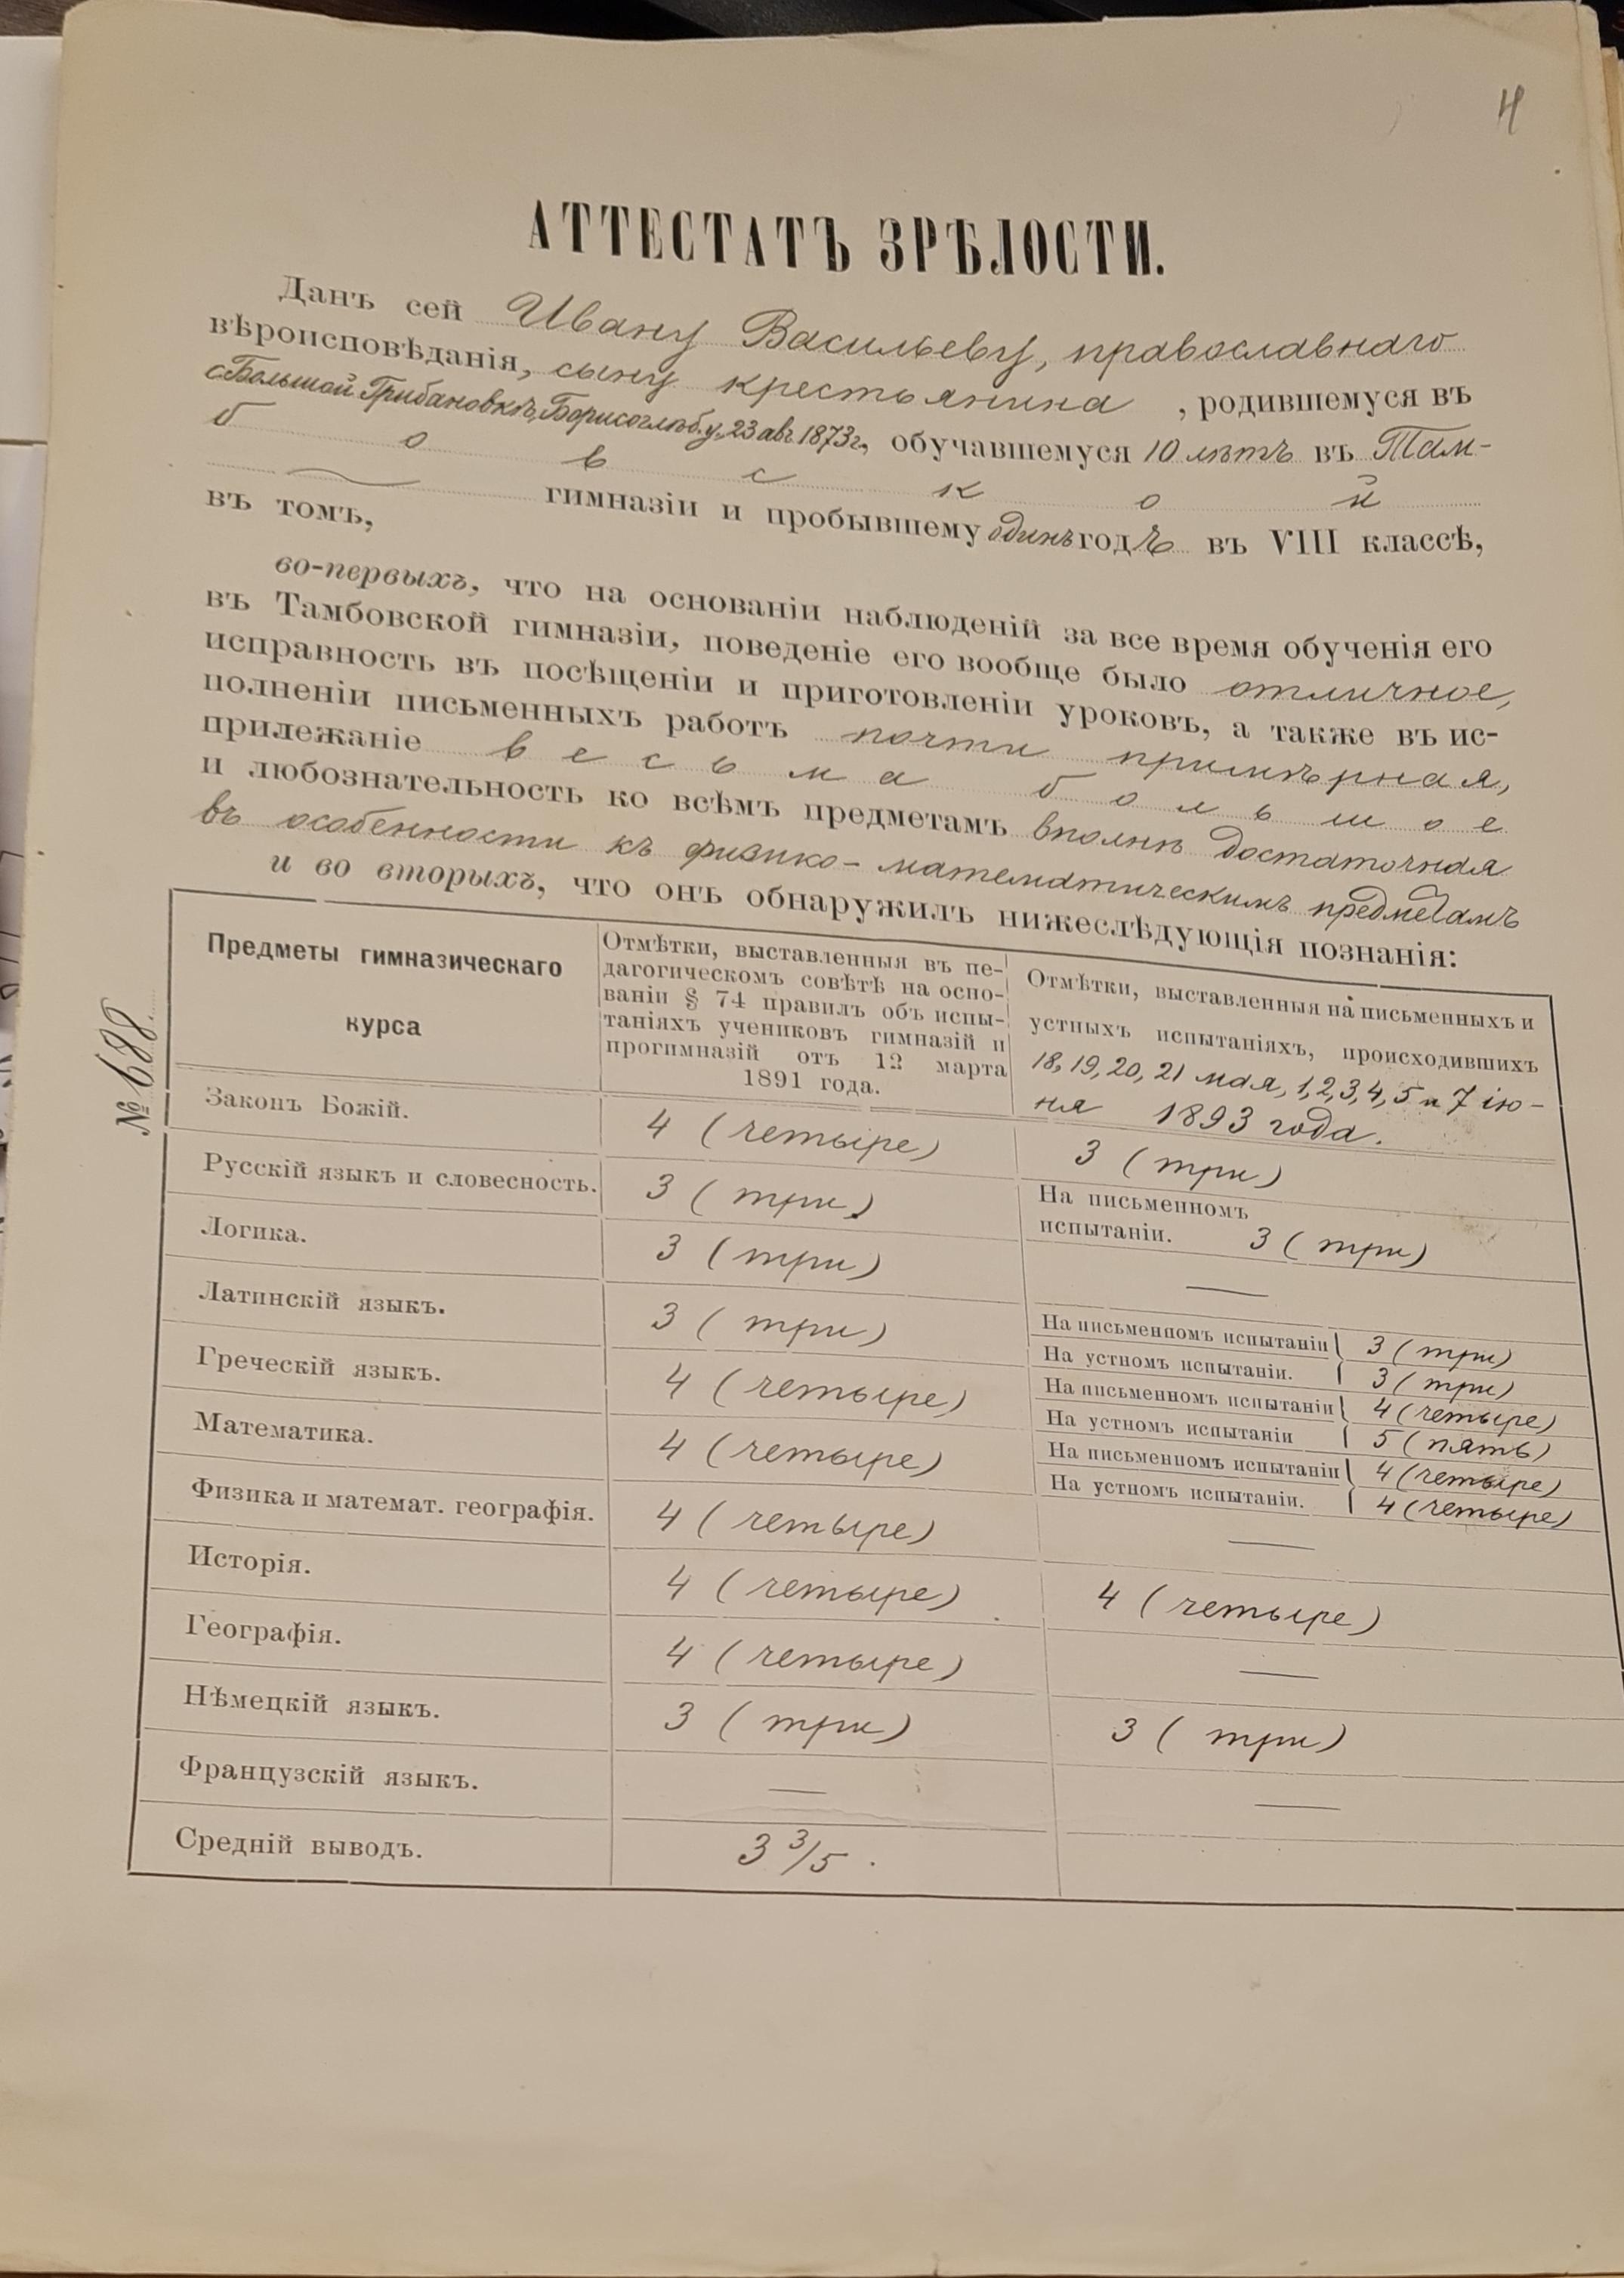 4
АТТЕСТАТЪ ЗРѢЛОСТИ.
Данъ сей Ивану Васильеву, православнаго
вѣроисповѣданія, сыну крестьянина, родившемуся въ
с. Большой Грибановкѣ, Борисоглѣб. у., 23 авг. 1873 г., обучавшемуся 10 лѣтъ въ Там-
бовской
гимназіи и пробывшему одинъ годъ въ VIII классѣ,
въ томъ,
во-первыхъ, что на основаніи наблюденій за все время обученія его
въ Тамбовской гимназіи, поведеніе его вообще было отличное,
исправность въ посѣщеніи и приготовленіи уроковъ, а также въ ис-
полненіи письменныхъ работъ почти примѣрная,
прилежаніе весьма большое
и любознательность ко всѣмъ предметамъ вполнѣ достаточная
въ особенности къ физико-математическимъ предметамъ
и во вторыхъ, что онъ обнаружилъ нижеслѣдующія познанія:
№ 688
Предметы гимназическаго
курса
Отмѣтки, выставленныя въ пе-
дагогическомъ совѣтѣ на осно-
ваніи § 74 правилъ объ испы-
таніяхъ учениковъ гимназій и
прогимназій отъ 12 марта
1891 года.
Отмѣтки, выставленныя на письменныхъ и
устныхъ испытаніяхъ, происходившихъ
18, 19, 20, 21 мая, 1, 2, 3, 4, 5 и 7 ію-
ня 1893 года.
Законъ Божій. 4 (четыре) 3 (три)
Русскій языкъ и словесность. 3 (три) На письменномъ
испытаніи. 3 (три)
Логика. 3 (три) —
Латинскій языкъ. 3 (три) На письменномъ испытаніи 3 (три)
На устномъ испытаніи. 3 (три)
Греческій языкъ. 4 (четыре) На письменномъ испытаніи 4 (четыре)
На устномъ испытаніи 5 (пять)
Математика. 4 (четыре) На письменномъ испытаніи 4 (четыре)
На устномъ испытаніи. 4 (четыре)
Физика и математ. географія. 4 (четыре) —
Исторія. 4 (четыре) 4 (четыре)
Географія. 4 (четыре) —
Нѣмецкій языкъ. 3 (три) 3 (три)
Французскій языкъ. — —
Средній выводъ. 3 3/5.